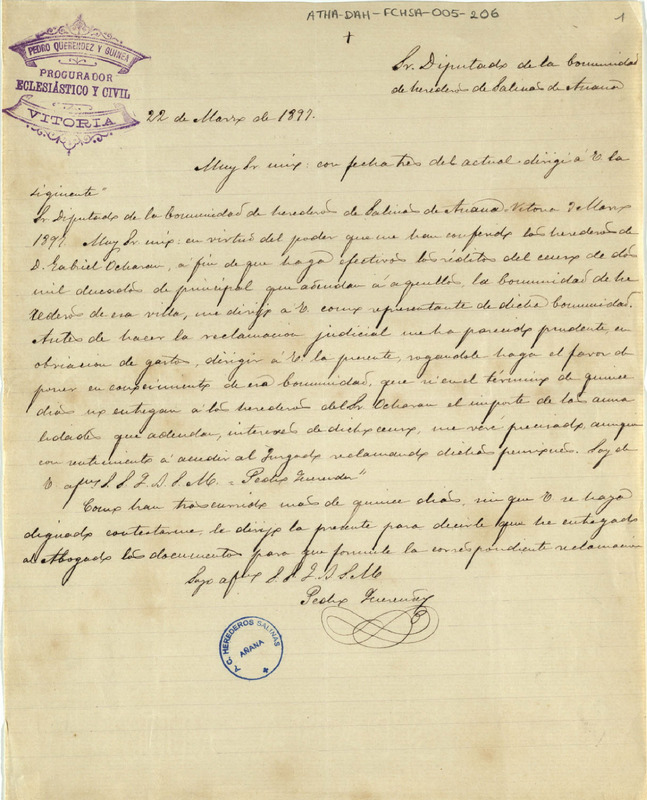 ATHA-DAH-FCHSA-005-206
1
PEDRO QUERENDEZ Y GUINEA
PROCURADOR
ECLESIÁSTICO Y CIVIL
VITORIA
Sr. Diputado de la Comunidad
de herederos de Salinas de Añana
22 de Marzo de 1897.
Muy Sr mio: con fecha tres del actual dirigi á V la
siguiente"
Sr. Diputado de la Comunidad de herederos de Salinas de Añana Vitoria 3 Marzo
1897. Muy Sr mio: en virtud del poder que me han conferido los herederos de
D. Gabriel Ocharan, á fin de que haga efectivos los réditos del censo de dos
mil ducados de principal que adeudan á aquellos, la Comunidad de he
rederos de esa villa, me dirijo á V como representante de dicha Comunidad.
Antes de hacer la reclamacion judicial me ha parecido prudente, en
obviacion de gastos, dirigir á V la presente, rogandole haga el favor de
poner en conocimiento de esa Comunidad, que si en el término de quince
dias no entregan á los herederos del Sr Ocharan el importe de las anua
lidades que adeudan, intereses de dicho censo, me veré precisado, aunque
con sentimiento á acudir al Juzgado reclamando dichas pensiones. Soy de
V afmo S. S. Q. B. S. M. = Pedro Querendez"
Como han trascurrido mas de quince dias, sin que V se haya
dignado contestarme, le dirijo la presente para decirle que he entregado
al Abogado los documentos para que formule la correspondiente reclamacion
Suyo afmo S. S. Q. B. S. M
Pedro Querendez
A.C. HEREDEROS SALINAS
AÑANA